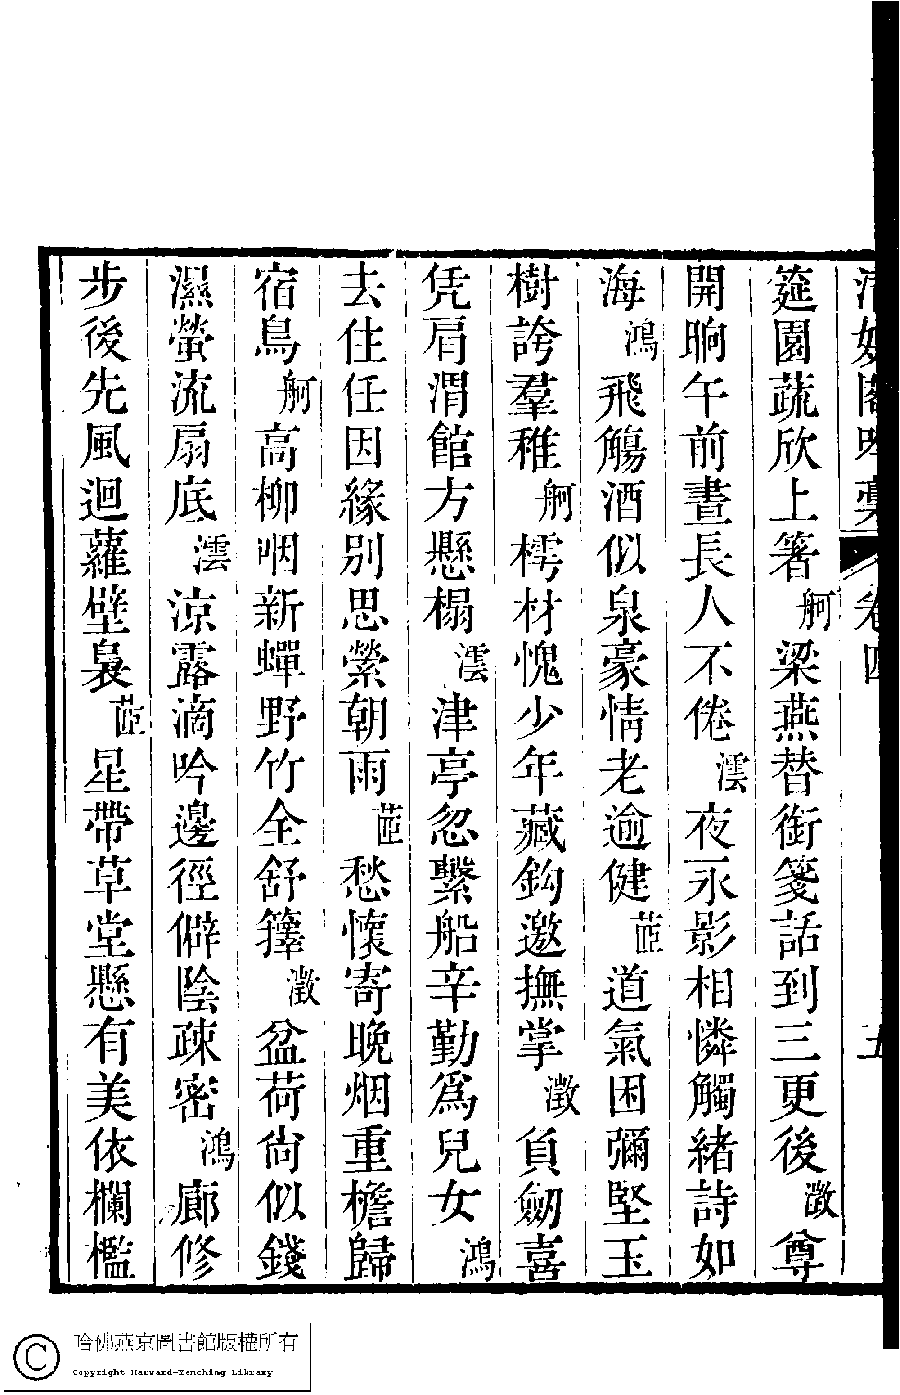 筵園蔬欣上箸舸梁燕替銜箋話到三更後澂尊
開晌午前晝長人不倦澐夜永影相憐觸緒詩如
海鴻飛觴酒似泉豪情老逾健茝道氣困彌堅玉
樹誇羣稚舸樗材愧少年藏鈎邀撫掌澂負劒喜
凭肩渭館方懸榻澐津亭忽繫船辛勤爲兒女鴻
去住任因緣別思縈朝雨茝愁懷寄晚烟重檐歸
宿鳥舸高柳咽新蟬野竹全舒籜澂盆荷尙似錢
濕螢流扇底澐涼露滴吟邊徑僻陰疎密鴻廊修
步後先風迴蘿壁裊茝星帶草堂懸有美依欄檻
哈佛燕京圖書館版權所有
Copyright Harvard-Yenching Library